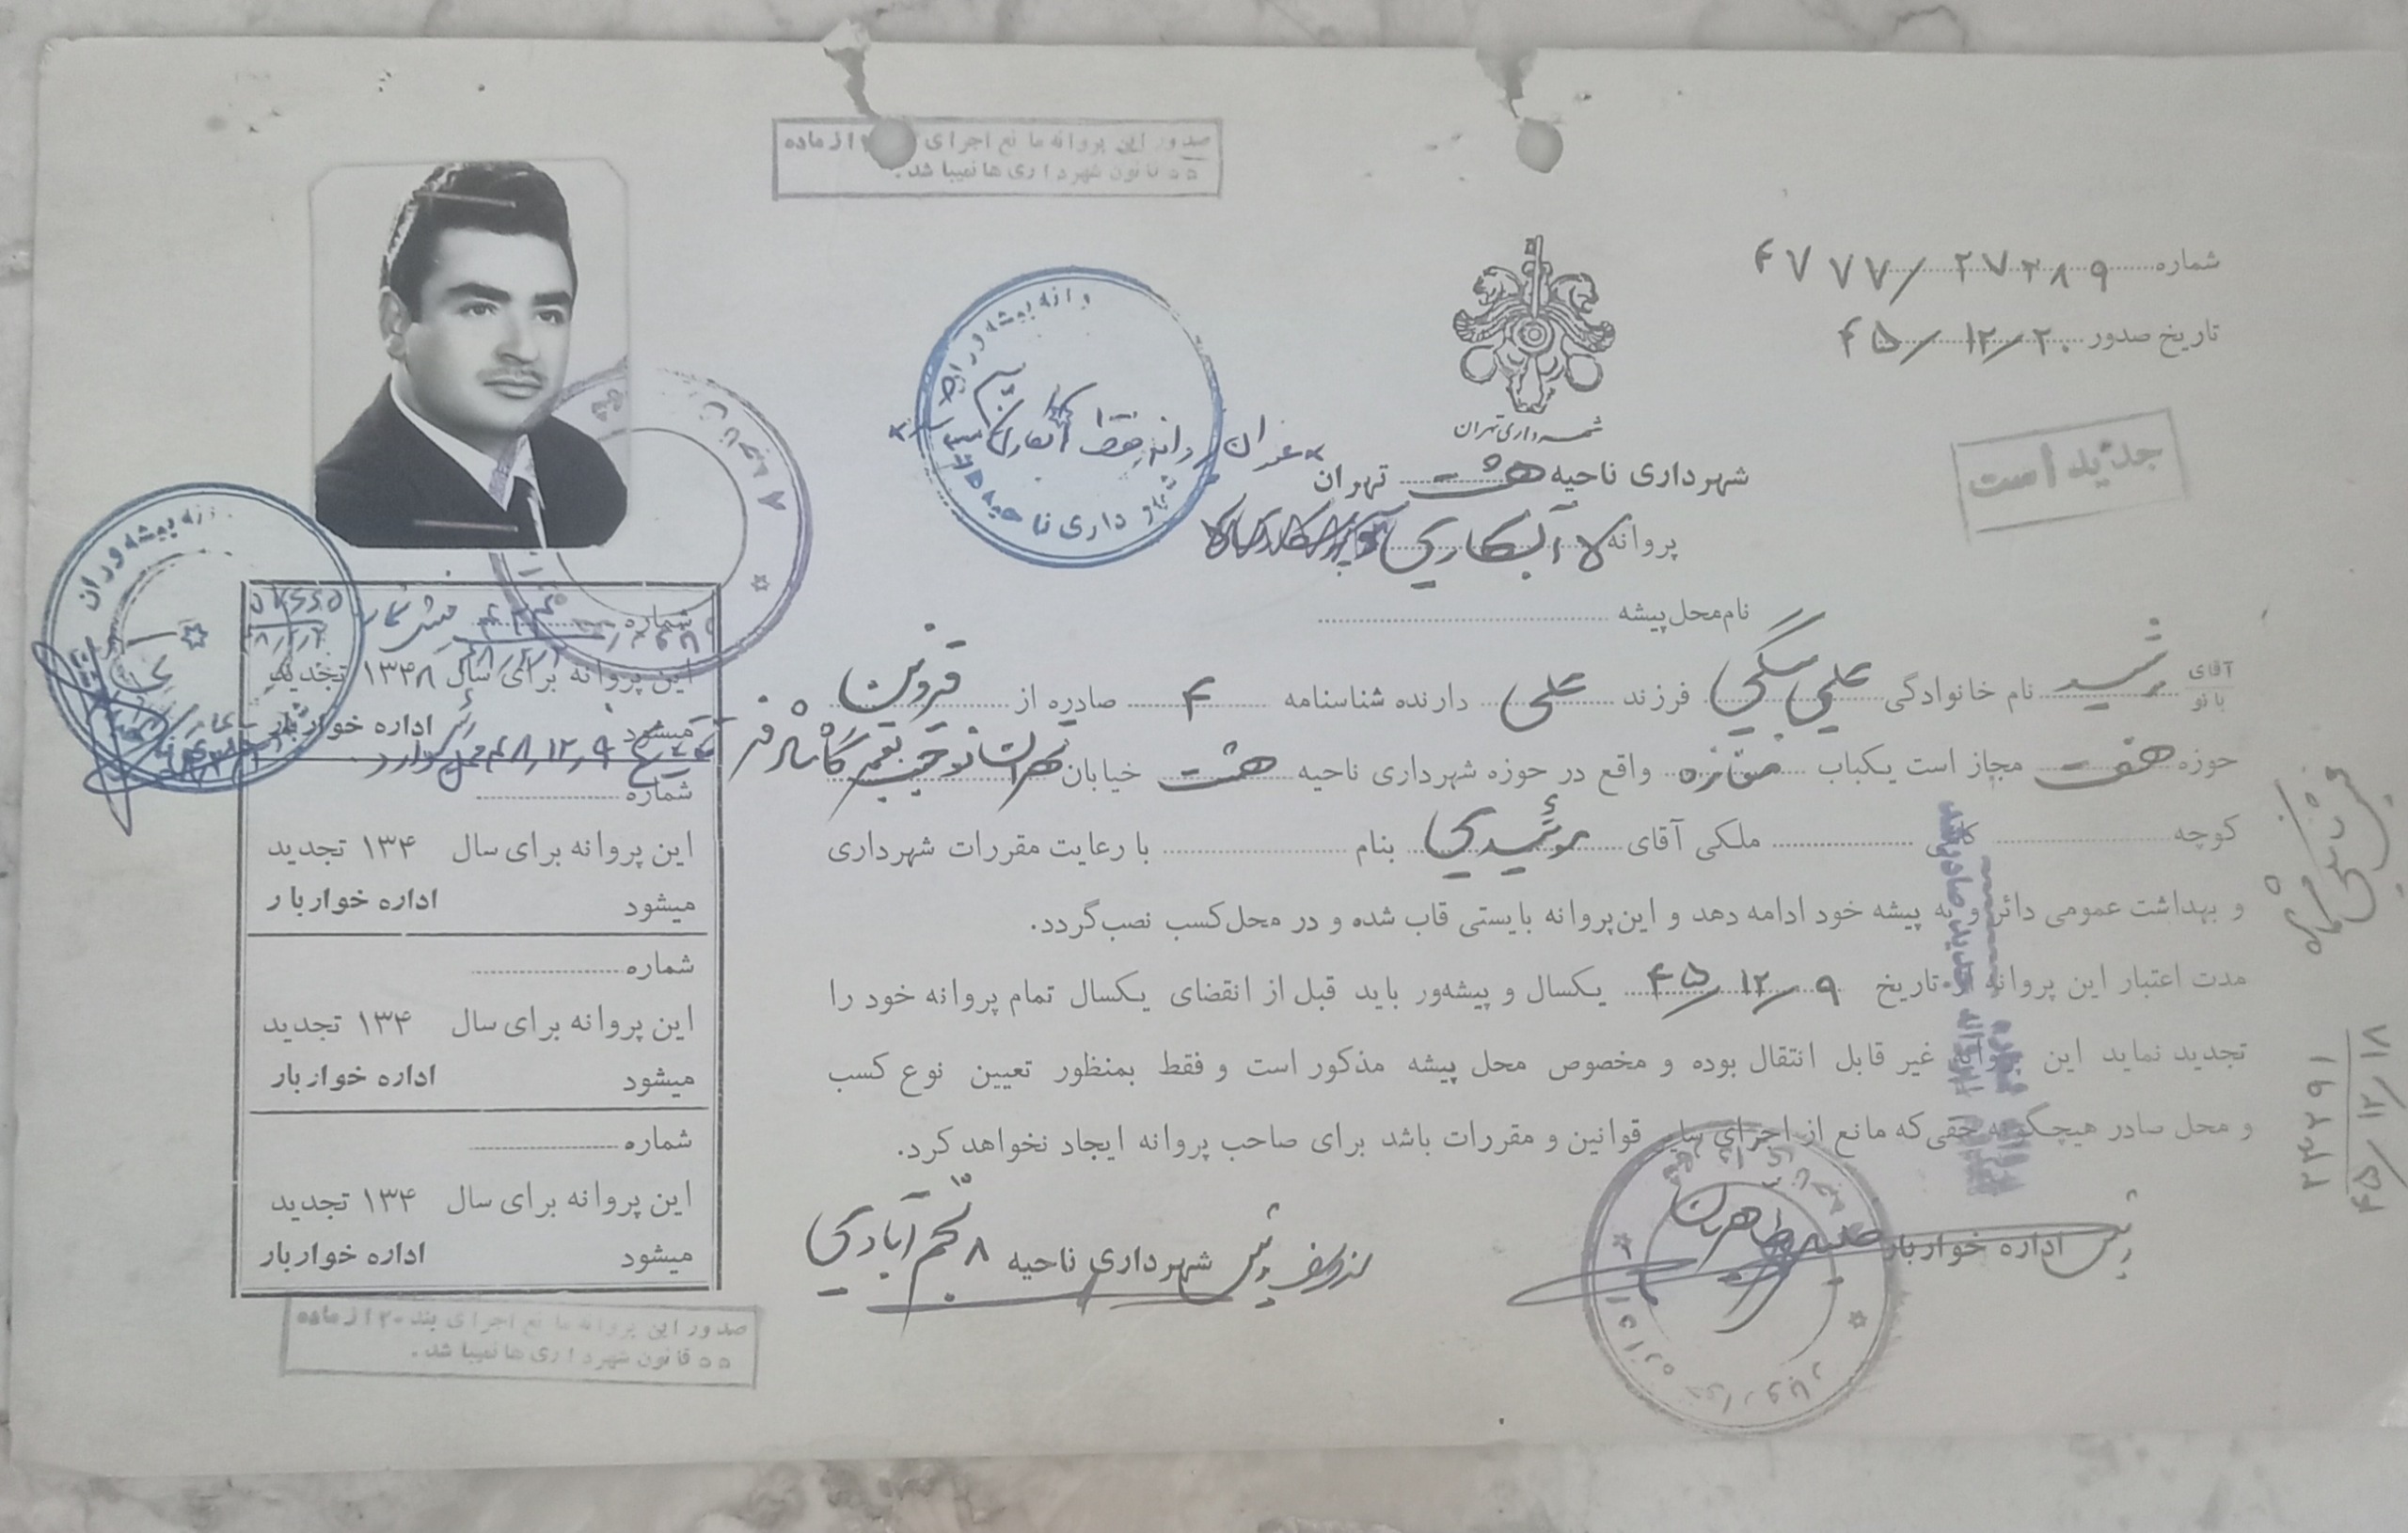 صدور این پروانه مانع اجرای از ماده
۵۵ قانون شهرداری ها نمیباشد.
شماره ۴۷۷۷/ ۲۷۳۸۹
تاریخ صدور ۴۵/۱۲/۲۰
جدید است
شهرداری تهران
شهرداری ناحیه هشت تهران
پروانه آبکاری
نام محل پیشه
آقای
بانو
نام خانوادگی علی بیگی فرزند علی دارنده شناسنامه ۴ صادره از قزوین
حوزه هفت مجاز است یکباب مغازه واقع در حوزه شهرداری ناحیه هشت خیابان
کوچه ملکی آقای بنام با رعایت مقررات شهرداری
و بهداشت عمومی دائر و به پیشه خود ادامه دهد و این پروانه بایستی قاب شده و در محل کسب نصب گردد.
مدت اعتبار این پروانه از تاریخ ۴۵/۱۲/۹ یکسال و پیشه‌ور باید قبل از انقضای یکسال تمام پروانه خود را
تجدید نماید این پروانه غیر قابل انتقال بوده و مخصوص محل پیشه مذکور است و فقط بمنظور تعیین نوع کسب
و محل صادر هیچگونه حقی که مانع از اجرای سایر قوانین و مقررات باشد برای صاحب پروانه ایجاد نخواهد کرد.
رئیس اداره خواربار
رئیس شهرداری ناحیه ۸ نجم آبادی
شماره
این پروانه برای سال ۱۳۴۸ تجدید
میشود اداره خواربار
شماره
این پروانه برای سال ۱۳۴ تجدید
میشود اداره خواربار
شماره
این پروانه برای سال ۱۳۴ تجدید
میشود اداره خواربار
شماره
این پروانه برای سال ۱۳۴ تجدید
میشود اداره خواربار
صدور این پروانه مانع اجرای بند ۲۰ از ماده
۵۵ قانون شهرداری ها نمیباشد.
۲۳۲۹۱
۴۵/۱۲/۱۸